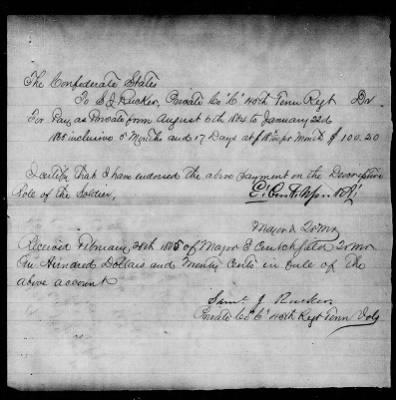 The Confederate States
To S J Rucker, Private Co "C" 40th Tenn Regt Dr
For Pay as Private from August 6th 1864 to January 22d
1865 inclusive 5 Months and 17 Days at $18 per Month $100.20
I certify that I have endorsed the above payment on the Descriptive
Role of the Soldier,
Major & Qr Mr
Received February 28th 1865 of Major E Qr Mr
One Hundred Dollars and Twenty Cents in full of the
above account
Saml. J. Rucker
Private Co "C" Regt Tenn Vols